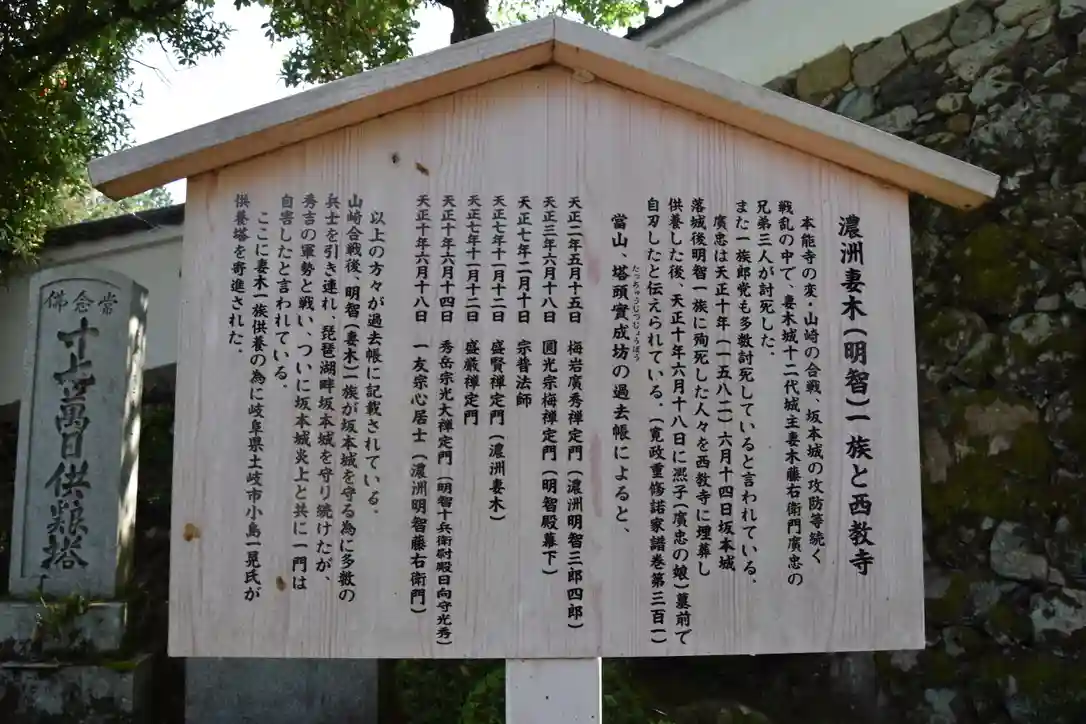 濃洲妻木(明智)一族と西教寺
本能寺の変・山崎の合戦、坂本城の攻防等続く
戦乱の中で、妻木城十二代城主妻木藤右衛門廣忠の
兄弟三人が討死した。
また一族郎党も多数討死していると言われている。
廣忠は天正十年(一五八二)六月十四日坂本城
落城後明智一族に殉死した人々を西教寺に埋葬し
供養した後、天正十年六月十八日に凞子(廣忠の娘)墓前で
自刃したと伝えられている。(寛政重修諸家譜巻第三百一)
當山、塔頭實成坊の過去帳によると、
たっちゅうじつじょうぼう
天正二年五月十五日 梅岩廣秀禅定門(濃洲明智三郎四郎)
天正三年六月十八日 圓光宗梅禅定門(明智殿幕下)
天正七年二月十日 宗普法師
天正七年十一月十二日 盛賢禅定門(濃洲妻木)
天正七年十一月十二日 盛厳禅定門
天正十年六月十四日 秀岳宗光大禅定門(明智十兵衛尉殿日向守光秀)
天正十年六月十八日 一友宗心居士(濃洲明智藤右衛門)
以上の方々が過去帳に記載されている。
山崎合戦後、明智(妻木)一族が坂本城を守る為に多数の
兵士を引き連れ、琵琶湖畔坂本城を守り続けたが、
秀吉の軍勢と戦い、ついに坂本城炎上と共に一門は
自害したと言われている。
ここに妻木一族供養の為に岐阜県土岐市小島一晃氏が
供養塔を寄進された。
常念佛
十七萬日供粮塔